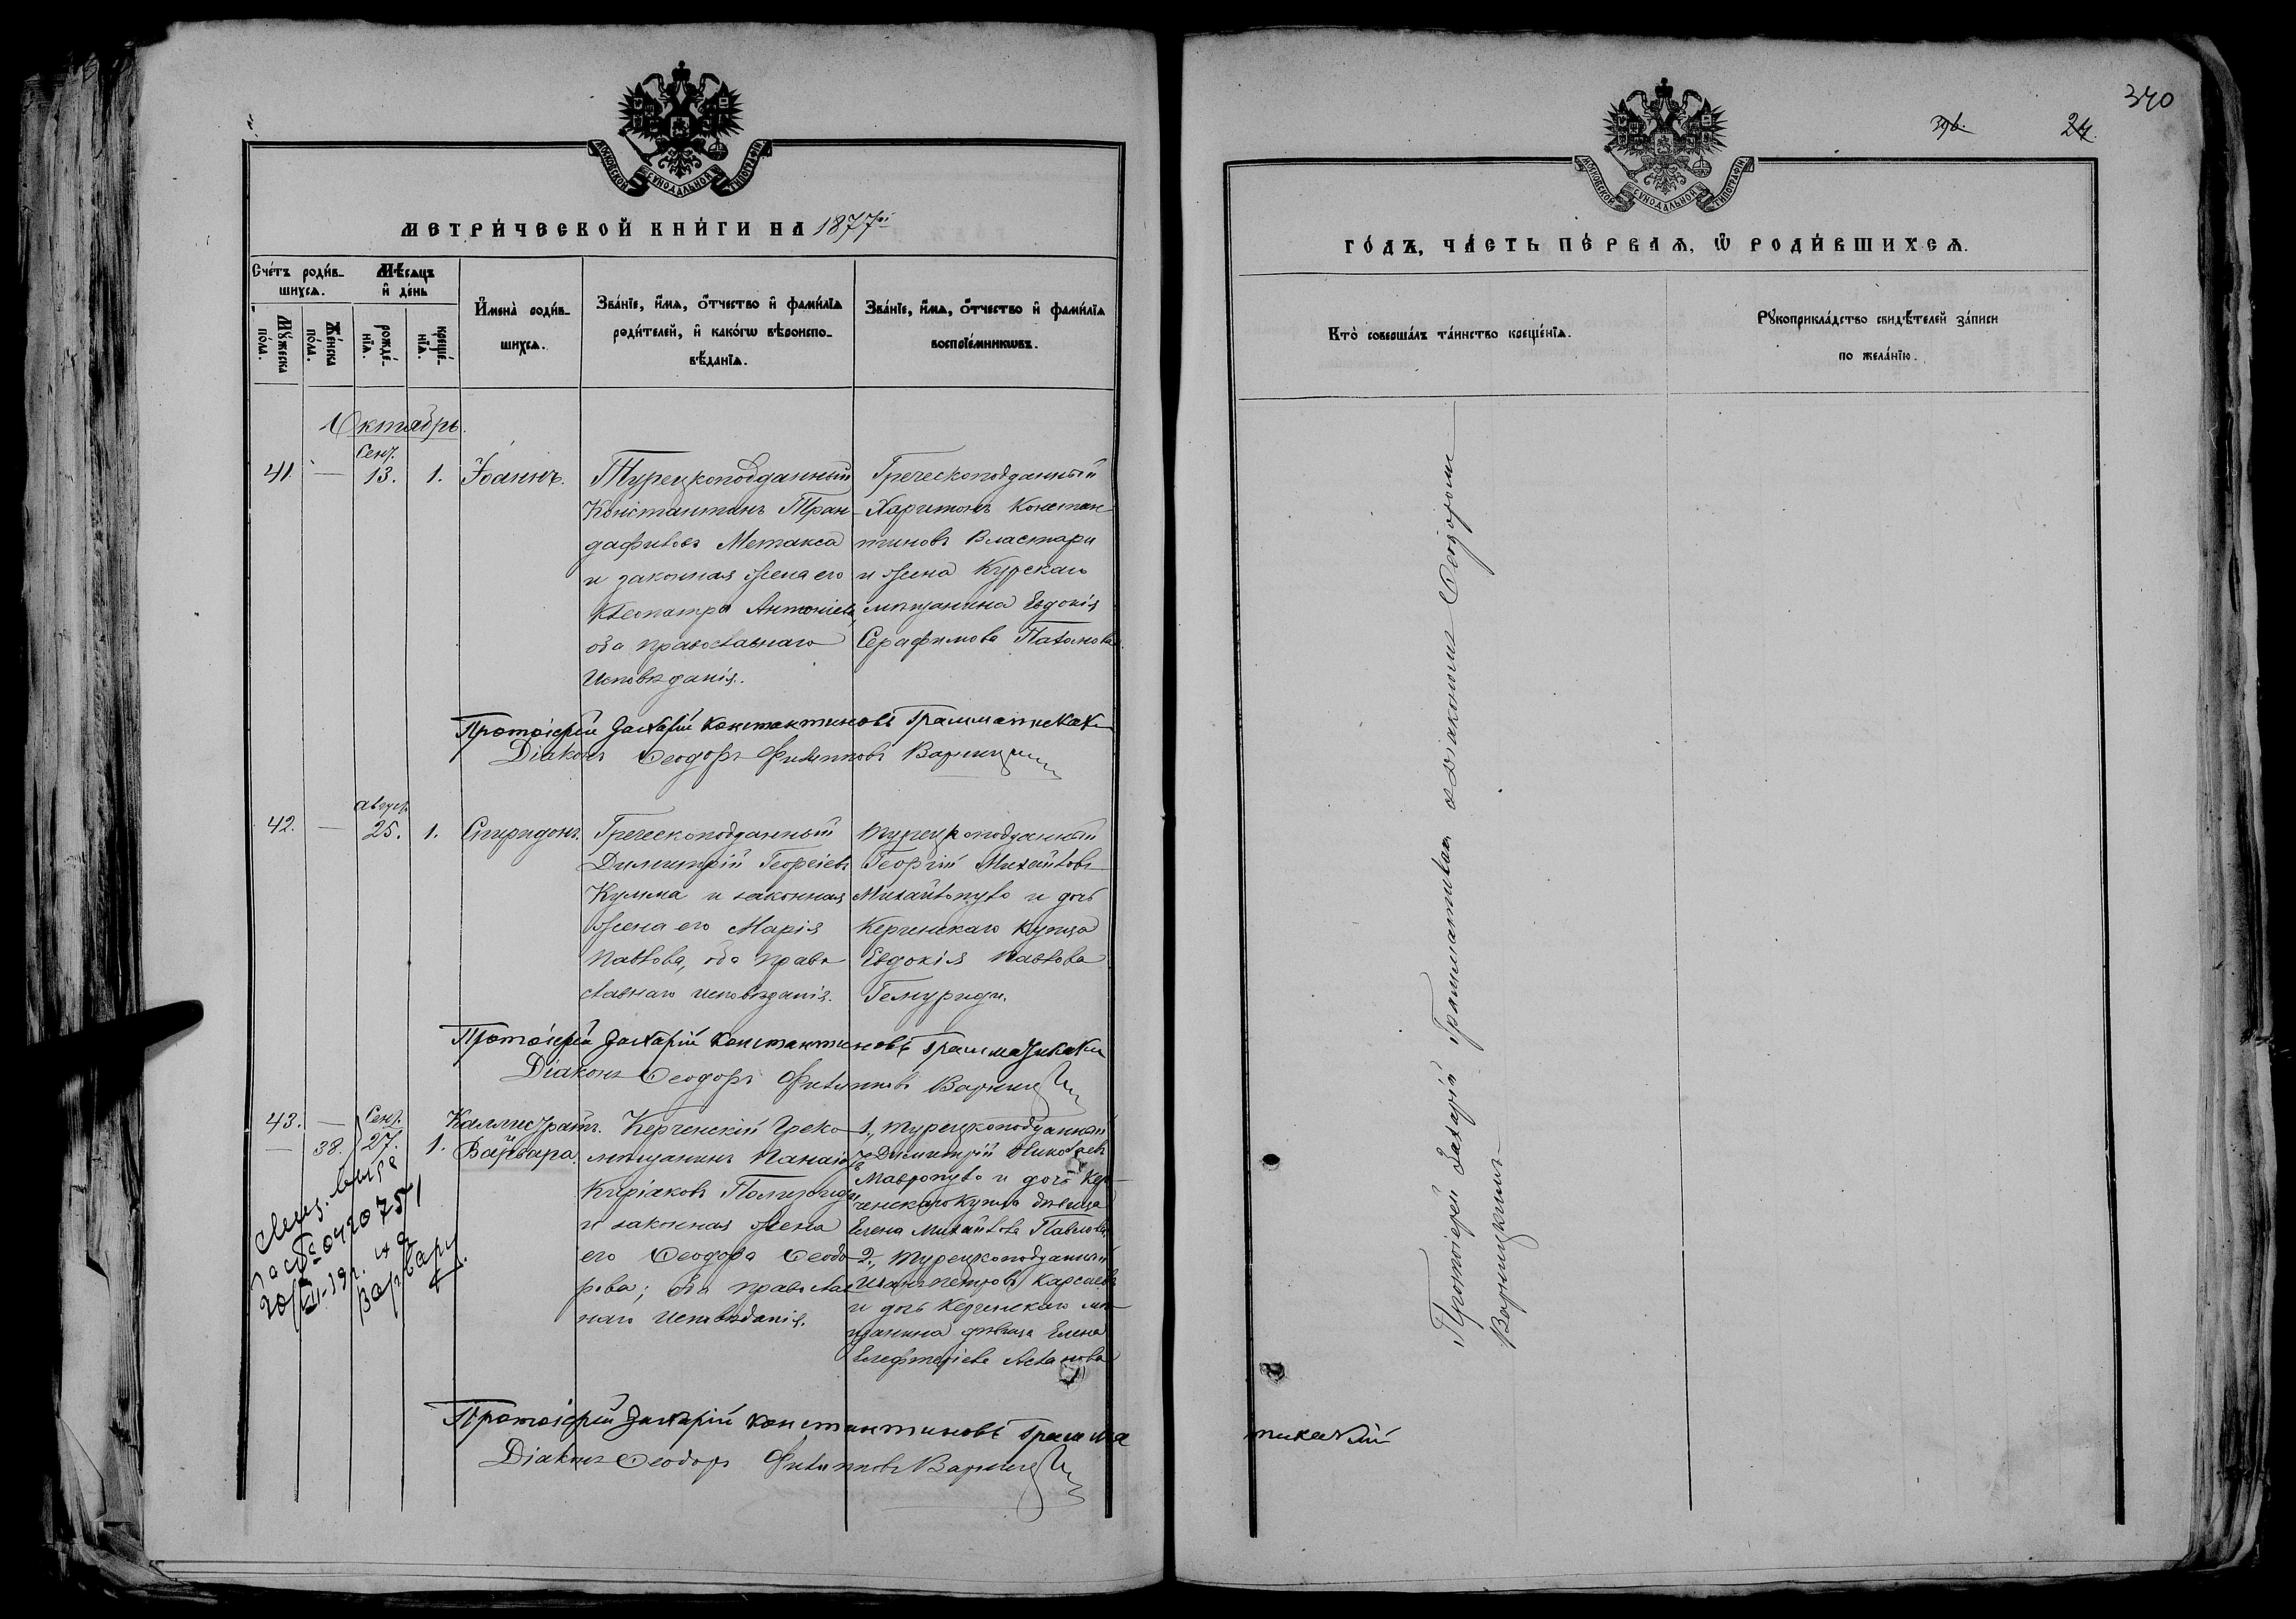 МОСКОВСКОЙ СѴНОДАЛЬНОЙ ТИПОГРАФІИ
МЕТРИ́ЧЕСКОЙ КНИ́ГИ НА 1877й
Сче́тъ роди́в-
шихсѧ.
Мѣ́сѧцъ
и҆ де́нь
Мꙋ́жеска
по́ла.
Же́нска
по́ла.
рожде́-
нїѧ.
креще́-
нїѧ.
И҆мена̀ роди́в-
шихсѧ.
Зва́нїе, и҆́мѧ, ѻ҆́тчество и҆ фами́лїѧ
роди́телей, и҆ како́гѡ вѣроиспо-
вѣ́данїѧ.
Зва́нїе, и҆́мѧ, ѻ҆́тчество и҆ фами́лїѧ
воспрїе́мникѡвъ.
Октябрь.
41. — Сент. 13. 1. Іоаннъ.
Турецкоподданный
Константинъ Тран-
дафиловъ Метакса
и законная жена его
Клеопатра Антоніева,
оба православнаго
Исповѣданія.
Греческоподданный
Харитонъ Констан-
тиновъ Властари
и жена Курскаго
мѣщанина Евдокія
Серафимова
Протоіерей Захарій Константиновъ Грамматикаки
Діаконъ Ѳеодоръ Филипповъ Варницкій
42. — Август. 25. 1. Спиридонъ.
Греческоподданный
Димитрій Георгіевъ
и законная
жена его Марія
Павлова, оба право
славнаго исповѣданія.
Турецкоподданный
Георгій Михайловъ
Михайлопуло и дочь
Керченскаго купца
Евдокія Павлова
Протоіерей Захарій Константиновъ Грамматикаки
Діаконъ Ѳеодоръ Филипповъ Варницкій
43. — Сент. Каллистратъ.
— 38. 27. 1. и Варвара.
Керченскій Греко
мѣщанинъ Панаіотъ
Киріаковъ
и законная жена
его Ѳеодора Ѳеодо
рова; оба православ
наго исповѣданія.
1., Турецкоподданный
Димитрій Николаевъ
Мавропуло и дочь Кер-
ченскаго купца дѣвица
Елена Михайлова Павлова.
2., Турецкоподданный
и дочь Керченскаго мѣ-
щанина дѣвица Елена
Елефтеріева
№ 0420751
Варвару
Протоіерей Захарій Константиновъ Грамма
Діаконъ Ѳеодоръ Филипповъ Варницкій
340
396. 24.
МОСКОВСКОЙ СѴНОДАЛЬНОЙ ТИПОГРАФІИ
ГО́ДЪ, ЧА́СТЬ ПЕ́РВАѦ, Ѽ РОДИ́ВШИХСѦ.
Кто̀ соверша́лъ та́инство креще́нїѧ.
Рꙋкоприкла́дство свидѣ́телей за́писи
по жела́нїю.
Протоіерей Захарій Грамматикаки съ Діакономъ Ѳеодоромъ
Варницкимъ
тикакій